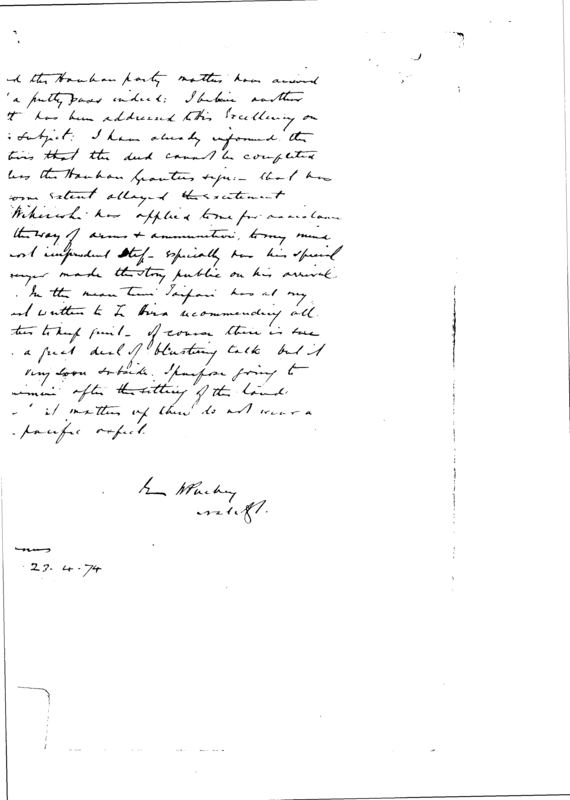 the Hauhau party matters have arrived
a pretty pass indeed; I believe another
has been addressed to His Excellency on
subject: I have already informed the
that the deed cannot be completed
the Hauhau Grantees sign:— that has
some extent allayed the excitement
has applied to me for assistance
the way of arms & ammunition, to my mind
most imprudent step – especially has his special
made the story public on his arrival
. In the mean time Taipari has at my
written to Te Hira recommending all
to keep quiet – of course there is sure
a great deal of blustering talk but it
very soon subside. I purpose going to
after the sitting of the
if matters up there do not wear a
pacific aspect.
Puckey
23. 4. 74